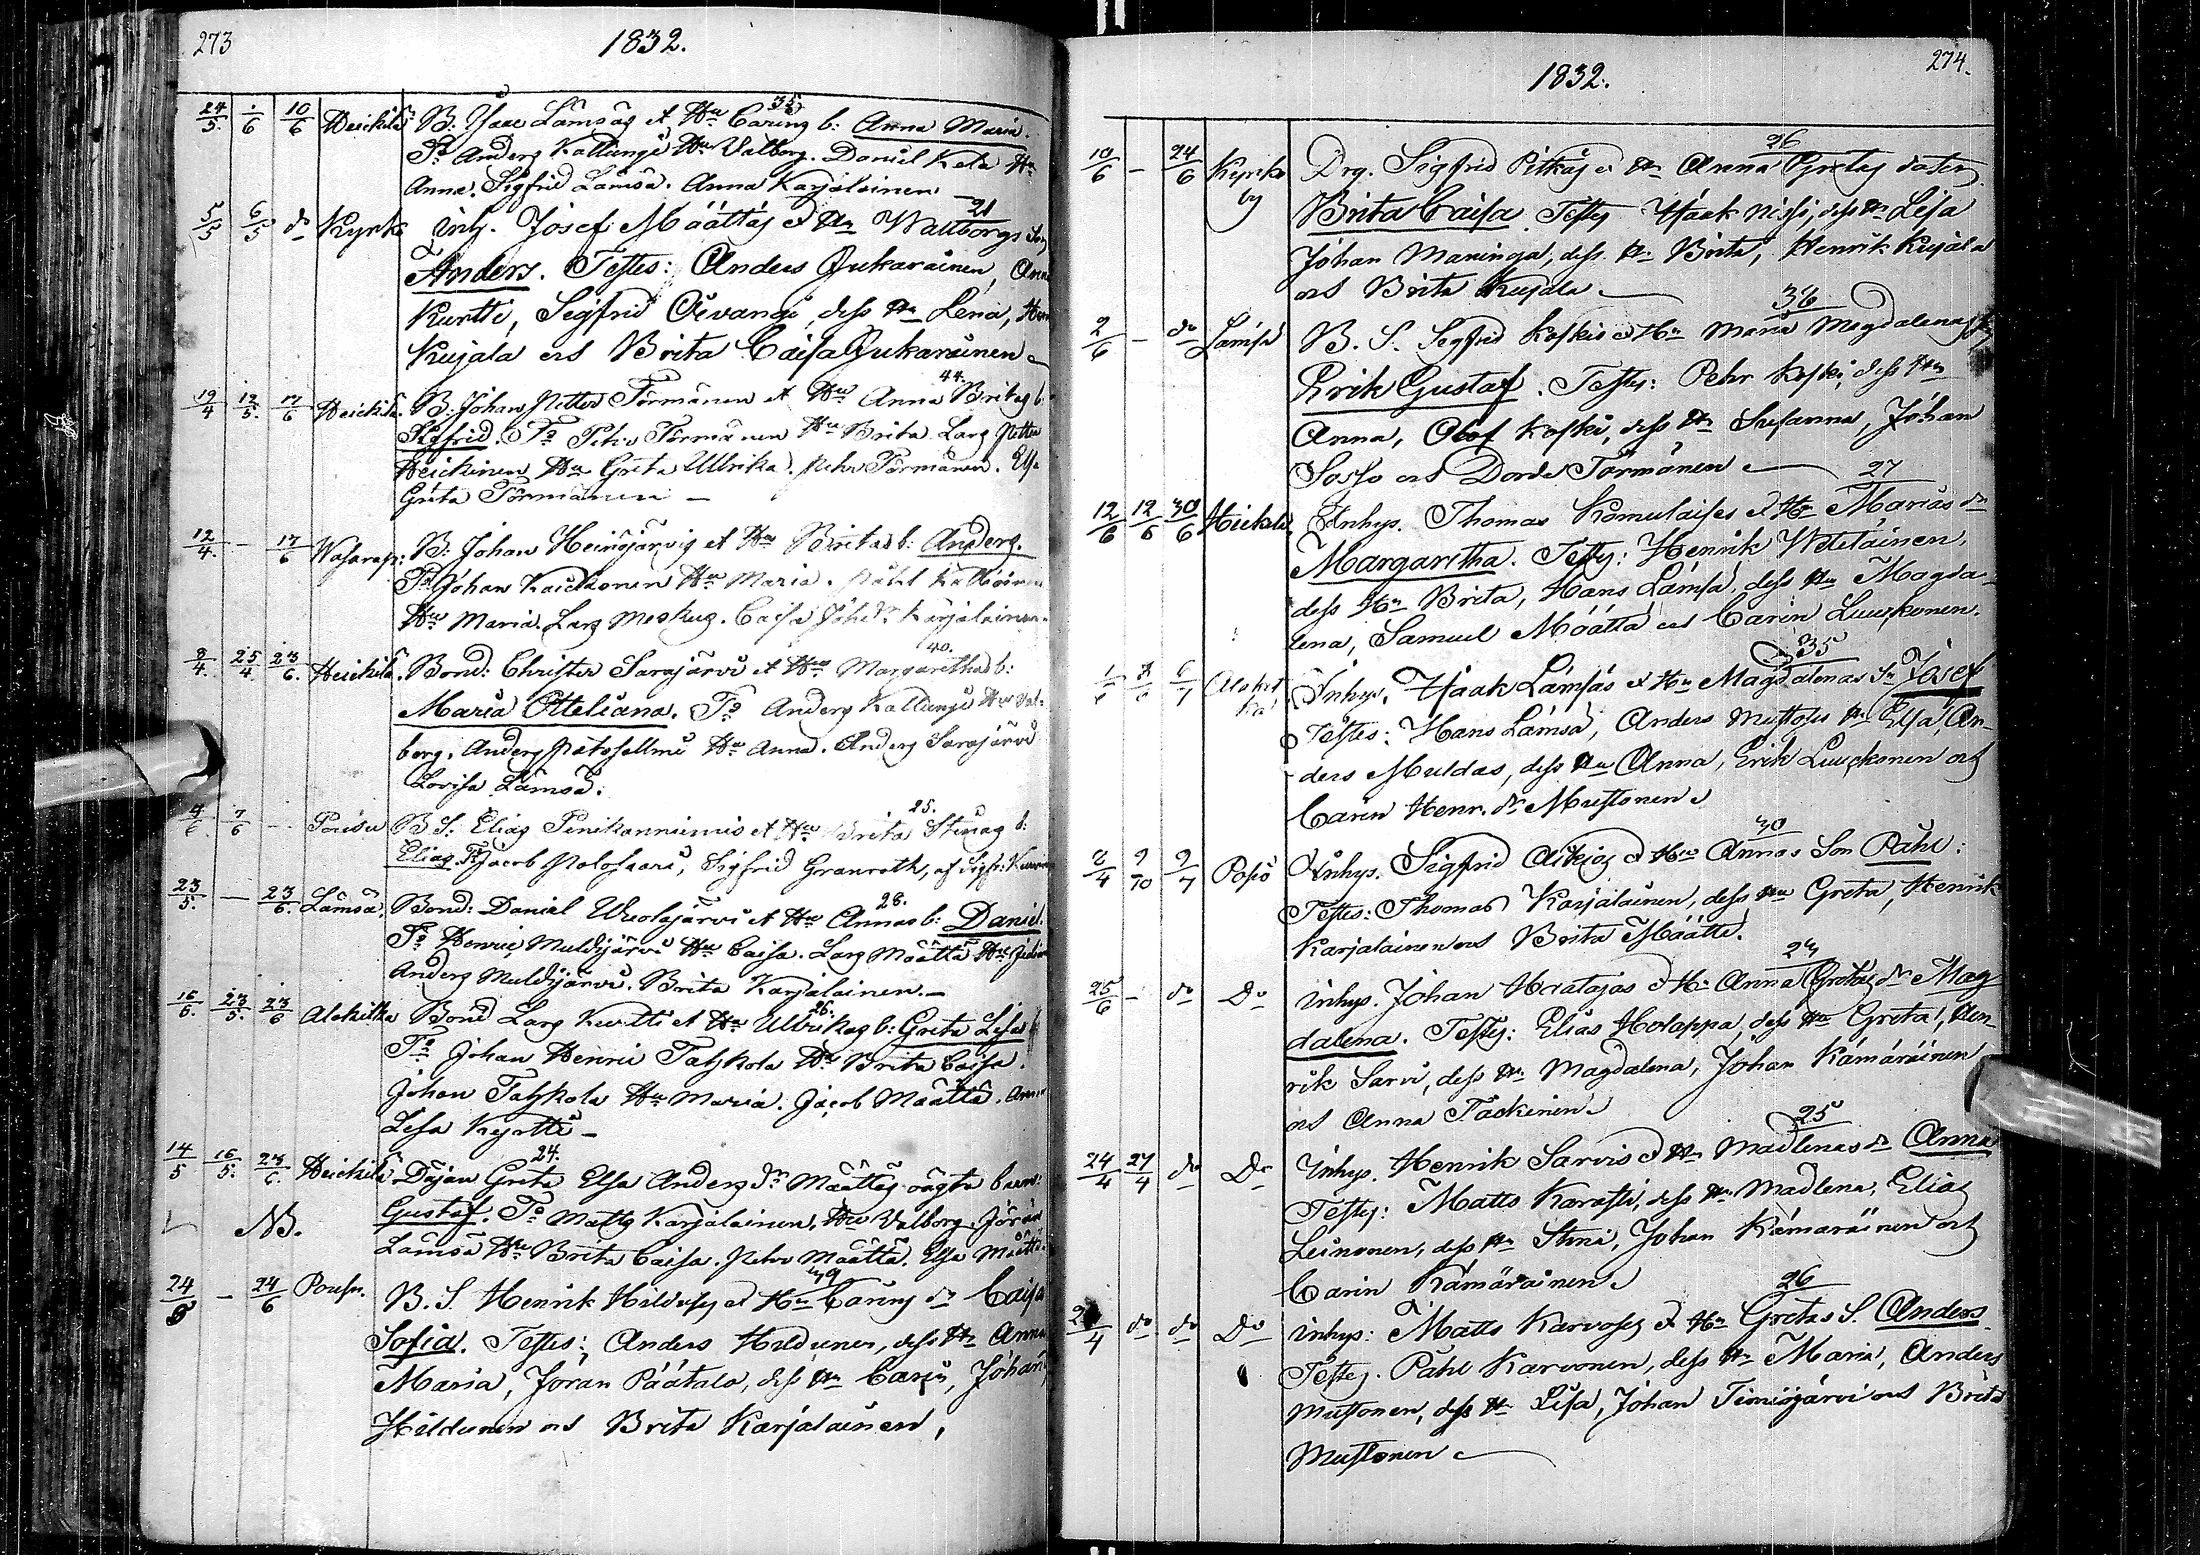 273
1832.
24/5. 1/6 10/6 Heickilä B: Isac Lämsäs et Hu Carins b: Anna Maria. 35
Ts Anders Kallungi Hu Valborg. Daniel Kela Hu
Anna. Sigfrid Lämsä. Anna Karjalainen
5/5 6/5 do Kyrko inh. Josef Määttäs et Hu Wallborgs Son, 21
Anders. Testes: Anders Jukarainen, Anna
Kurtti, Sigfrid Oivangi, dess Hu Lena,
Kujala och Brita Caisa Jukarainen
19/4 12/5. 17/6 Heickilä. B: Johan Petter Törmänen et Hu Anna Britas b: 44.
Sigfrid. Ts Pehr Törmänen Hu Brita. Lars Petter
Heickinen Hu Greta Ullrika. Pehr Törmänen. Elsa
Greta Törmänen
12/4. - 17/6 Wasarap: B: Johan Heinijärvis et Hu Britas b: Anders.
Ts Johan Kaickonen Hu Maria. Påhl Kallioinen
Hu Maria. Lars Meskus. Caisa Johsdr Karjalainen.
8/4. 25/4. 23/6. Heickilä. Bond: Christer Sarajärvi et Hu Margarethas b: 40.
Maria Otteliana. Ts Anders Kallungi Hu Val-
borg. Anders Pätosalmi Hu Anna. Anders Sarajärvi
Lovisa Lämsä.
4/6. 7/6 - Posiu B S: Elias Penikannimis et Hu Brita Stinas b: 25.
Elias. Ts Jacob Polohaara, Sigfrid Granroth, af Sigfr:
23/5. - 23/6. Lämsä. Bond: Daniel Wuolajärvi et Hu Annas b: Daniel. 28.
Ts Henric Muldijärvi Hu Caisa. Lars Määttä Hu
Anders Muldijärvi. Brita Karjalainen.
16/5. 23/5. 23/6 Alakitka Bond Lars Kurtti et Hu Ullrikas b: Greta Lisa 26.
Ts Johan Henric Talskola Hu Brita Caisa.
Johan Talskola Hu Maria. Jacob Määttä. Anna
Lisa Kurtti
14/5 16/5. 23/6. Heickilä Pigan Greta Elsa Anders dr Määttäs oägta barn: 24.
NB. Gustaf. Ts Matts Karjalainen, Hu Valborg. Jöran
Lämsä Hu Brita Caisa. Pehr Määttä. Elsa Määttä.
24/5 - 24/6 Posiu. B. S. Henrik Hildus et Hu Carins dr Caisa 39
Sofia. Testes: Anders Hildunen, dess Hu Anna
Maria, Jöran Päätalo, dess Hu Carin, Johan
Hildunen och Brita Karjalainen,
274.
1832.
10/6 - 24/6 Kyrko by Drg. Sigfrid Pitkäs et Hu Anna Gretas doter 26
Brita Caisa. Testes Isaak Nissi, dess Hu Lisa
Johan Maninga, dess Hu Brita, Henrik Kujala
och Brita Kujala
2/6 - do Lämsä B. S. Sigfrid Koskis et Hu Maria Magdalenas 36
Erik Gustaf. Testes: Pehr Koski, dess Hu
Anna, Olof Koski, dess Hu Susanna, Johan
Sosso och Dorde Törmänen
12/6 12/6 30/6 Heickilä Inhys. Thomas Komulaises et Hu Marias dr 27
Margaretha. Testes: Henrik Weteläinen,
dess Hu Brita, Hans Lämsä, dess Hu Magda-
lena, Samuel Määttä och Carin Luuckonen.
6/7 Alakitka Inhys. Isaak Lämsäs et Hu Magdalenas Sn Josef 35
Testes: Hans Lämsä, Anders Mustoses Hu Elsa, An-
ders Muldas, dess Hu Anna, Erik Luuckonen och
Carin Henr. dr Mustonen
2/4 9/10 9/7 Posiö Inhys. Sigfrid Aikios et Hu Annas Son Påhl: 30
Testes: Thomas Karjalainen, dess Hu Greta, Henrik
Karjalainen och Brita Määttä.
25/6 - do Do inhys. Johan Hratajas et Hu Anna Gretas dr Mag
dalena. Testes: Elias Holappa, dess Hu Greta, Hen-
rik Sarvi, dess Hu Magdalena, Johan Kämäräinen
och Anna Tackinen
24/4 27/4 do Do Inhys. Henrik Sarvis et Hu Madlenas dr Anna 25
Testes: Matts Karasti, dess Hu Madlena, Elias
Leinonen, dess Hu Stina, Johan Kämäräinen och
Carin Kämäräinen
4 do do Do inhys: Matts Karvoses et Hu Gretas S. Anders 26
Testes. Påhl Karvonen, dess Hu Maria, Anders
Mustonen, dess Hu Lisa, Johan Timisjärvi och Brita
Mustonen